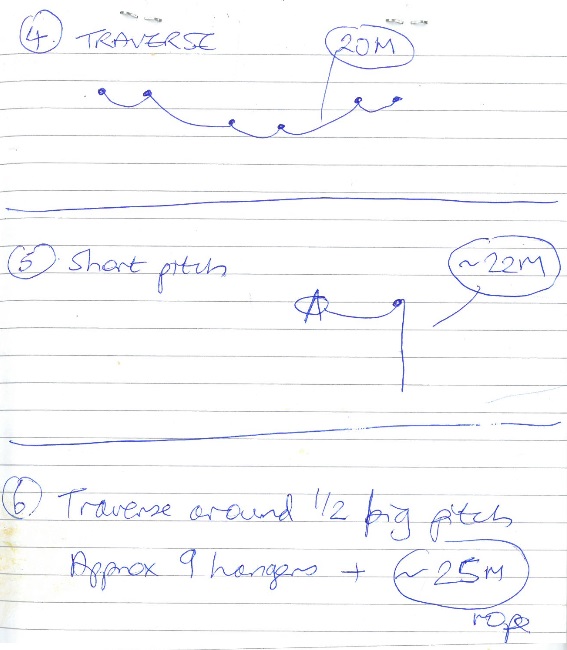 4. TRAVERSE
20M
5 Short pitch
~22M
A
6. Traverse around 1/2 big pitch
Approx 9 hangers + ~25M
rope